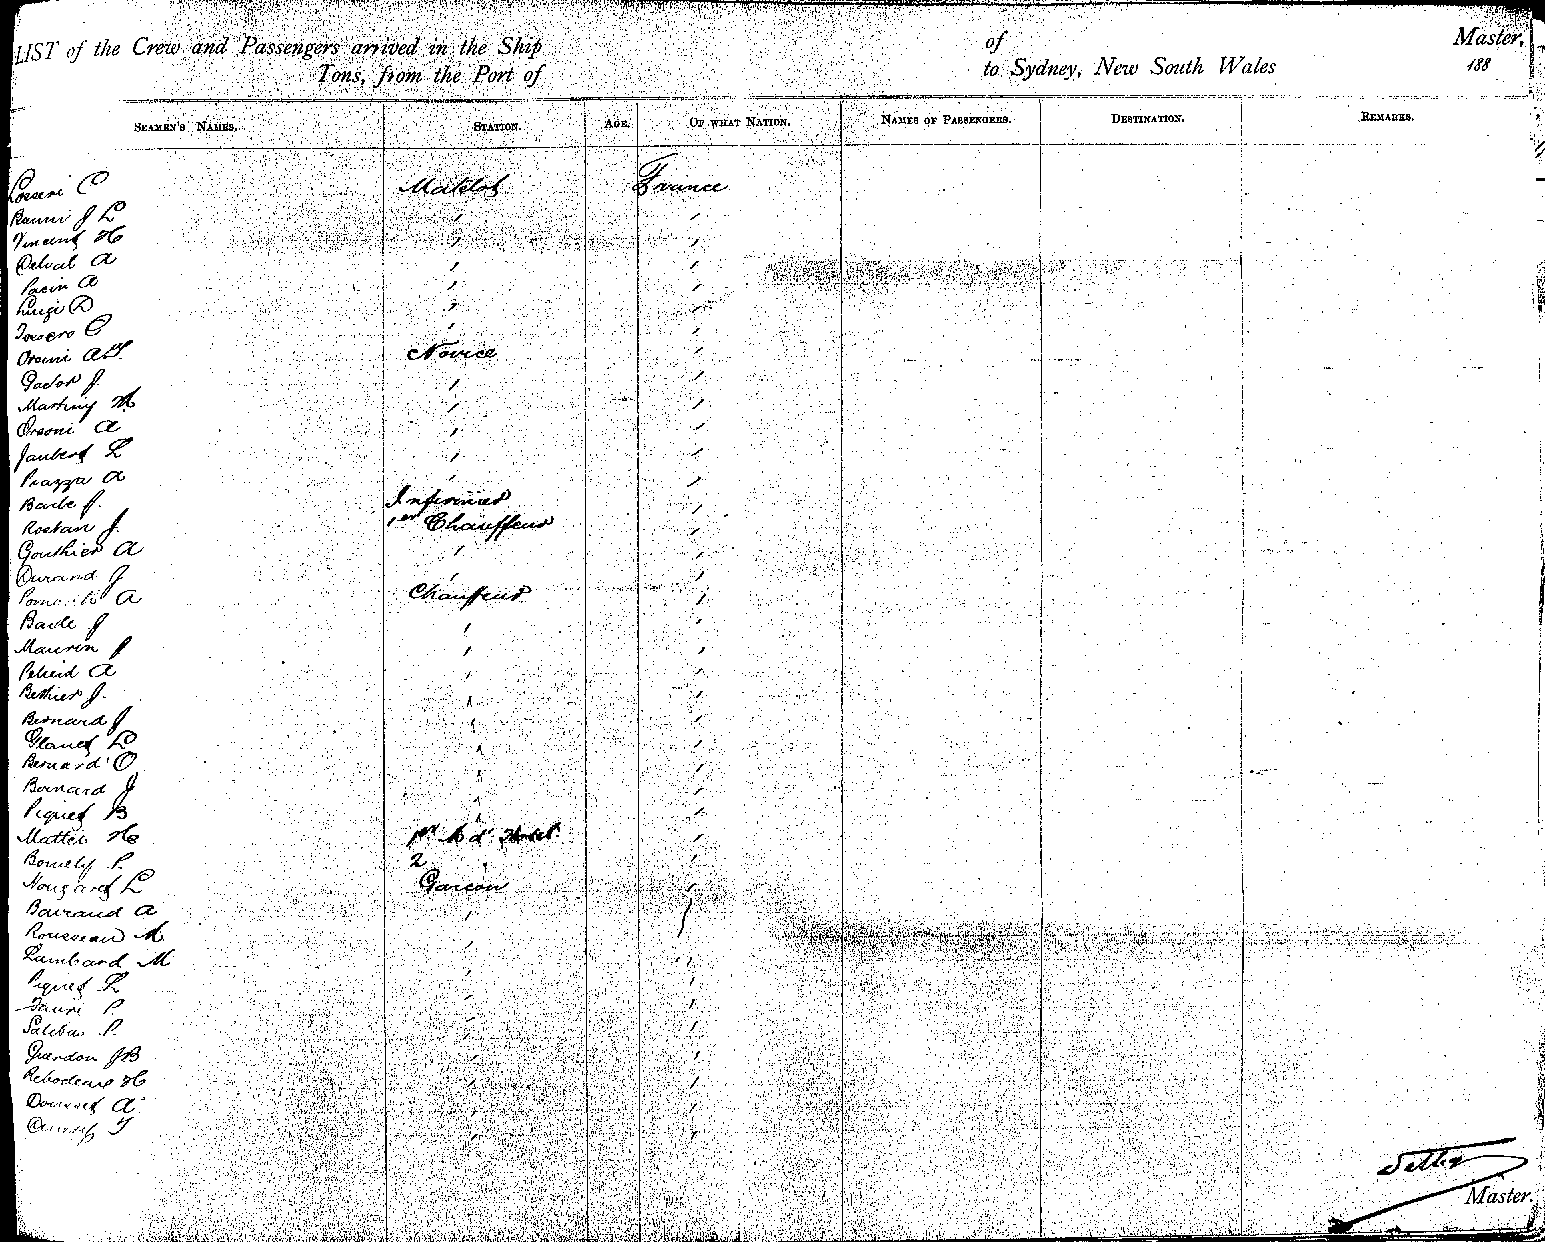 LIST of the Crew and Passengers arrived in the Ship of Master,
Tons, from the Port of to Sydney, New South Wales 188
SEAMEN'S NAMES. STATION. AGE. OF WHAT NATION. NAMES OF PASSENGERS. DESTINATION. REMARKS.
C Matelot France
J L
Vincent H
Delval A
Pacin A
Luigi D
C
Orsini A F Novice
Gador J.
Martiny M
Orsoni A
Jaubert L
Piazza A
Barle J. Infirmier
Rostan J. 1er Chauffeur
Gouthier A
Durand J
A Chauffeur
Barle J
Maurin J
A
Bethier J.
Bernard J
Glanet L
Bernard O
Bernard J
Piquet B
Mattei H 1er M d' Hotel
P. 2
Nougard L Garcon
Barraud A
Rousseau M
Lambard M
Piquet L
P.
Saliba P.
Guerdon J B
H
Doumet A
F
Master.